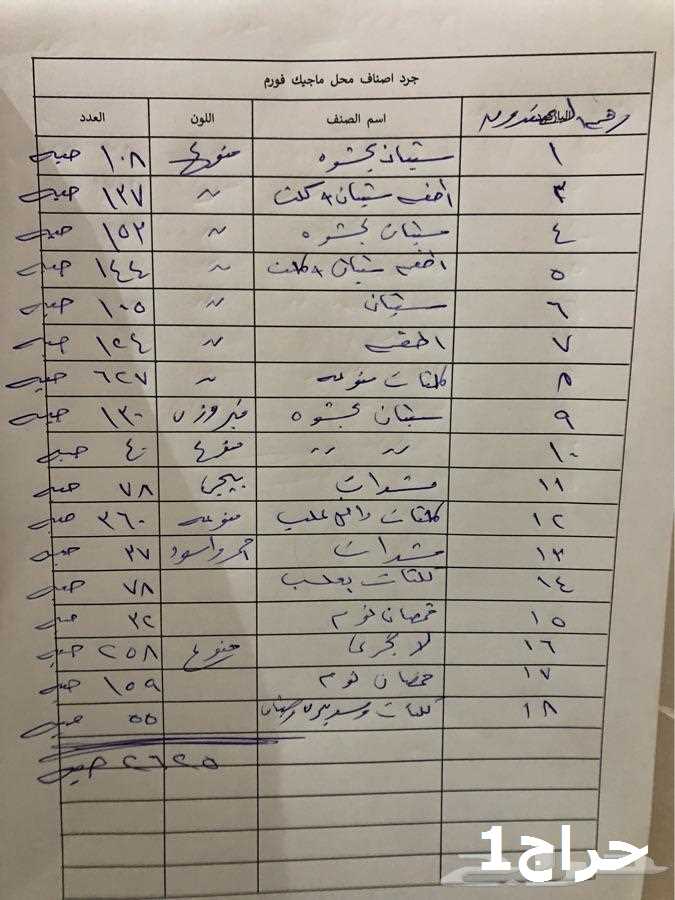 جرد اصناف محل ماجيك فورم
رقم اسم الصنف اللون العدد
١ ستيان بحشوه منوع ١٠٨ حبه
٣ اطقم ستيان + كلت " ١٣٧ حبه
٤ ستيان بحشوه " ١٥٣ حبه
٥ اطقم ستيان + كلت " ١٤٤ حبه
٦ ستيان " ١٠٥ حبه
٧ اطقم " ١٥٤ حبه
٨ كلتات منوعه " ٦٢٧ حبه
٩ ستيان بحشوه فيروزي ١٣٠ حبه
١٠ " " منوع ٤٠ حبه
١١ مشدات بيجي ٧٨ حبه
١٢ كلتات علب منوعه ٣٦٠ حبه
١٣ مشدات احمر واسود ٣٧ حبه
١٤ كلتات بعلب ٧٨ حبه
١٥ قمصان نوم ٣٢ حبه
١٦ لانجري منوع ٢٥٨ حبه
١٧ قمصان نوم ١٥٩ حبه
١٨ كلتات وستيان ٥٥ حبه
٢٦٢٥ حبه
حراج1